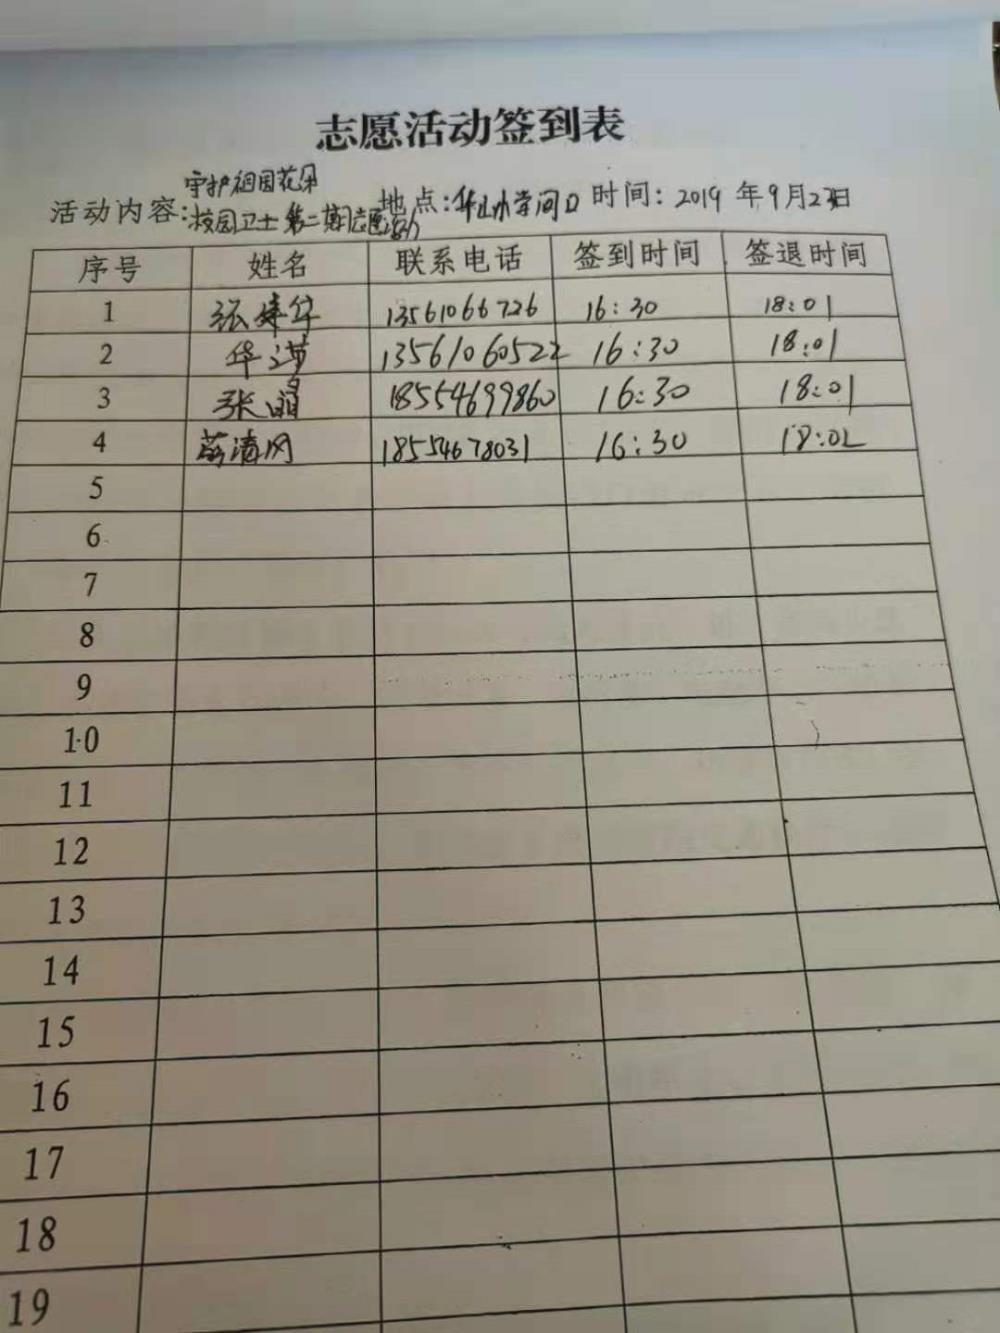 志愿活动签到表
守护祖国花朵
活动内容: 校园卫士第二期志愿活动 地点: 华山小学门口 时间: 2019 年 9月2日
序号 姓名 联系电话 签到时间 签退时间
1 张 华 13561066726 16:30 18:01
2 华 13561060522 16:30 18:01
3 张晶 18554699860 16:30 18:01
4 清风 18554678031 16:30 18:02
5
6
7
8
9
10
11
12
13
14
15
16
17
18
19